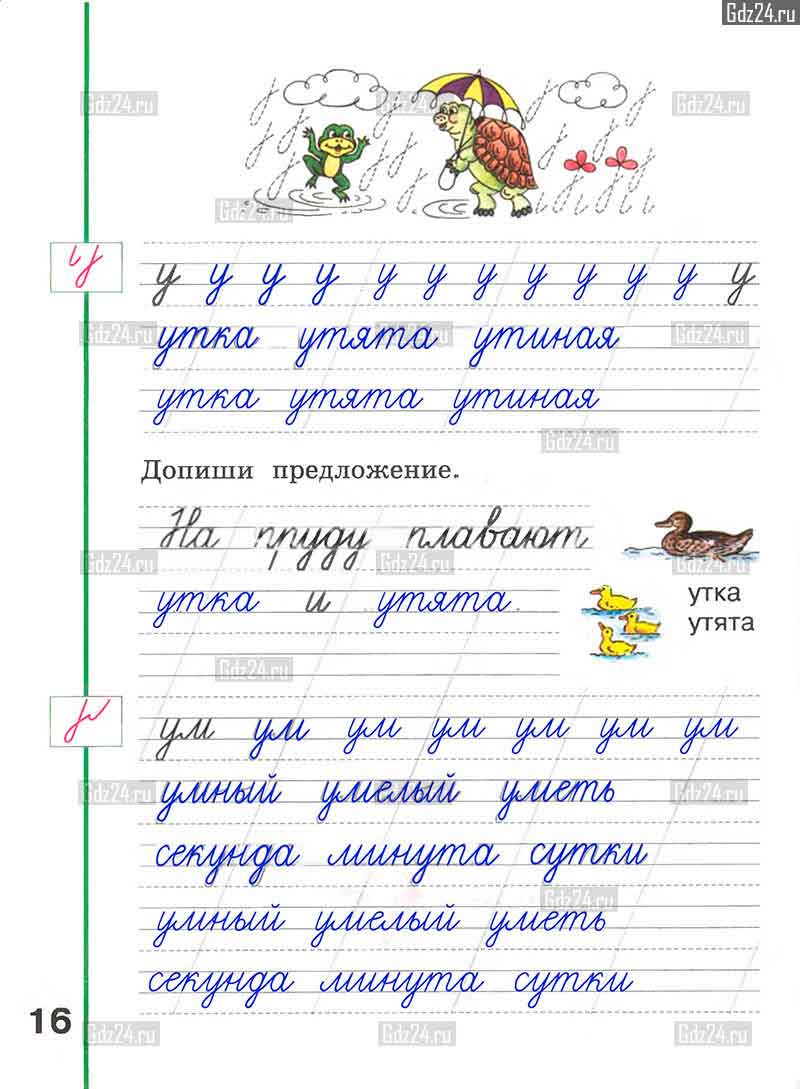 Gdz24.ru
у
у у у у у у у у у у у у
утка утята утиная
утка утята утиная
Допиши предложение.
На пруду плавают
утка и утята.
утка
утята
ум ум ум ум ум ум ум
умный умелый уметь
секунда минута сутки
умный умелый уметь
секунда минута сутки
16